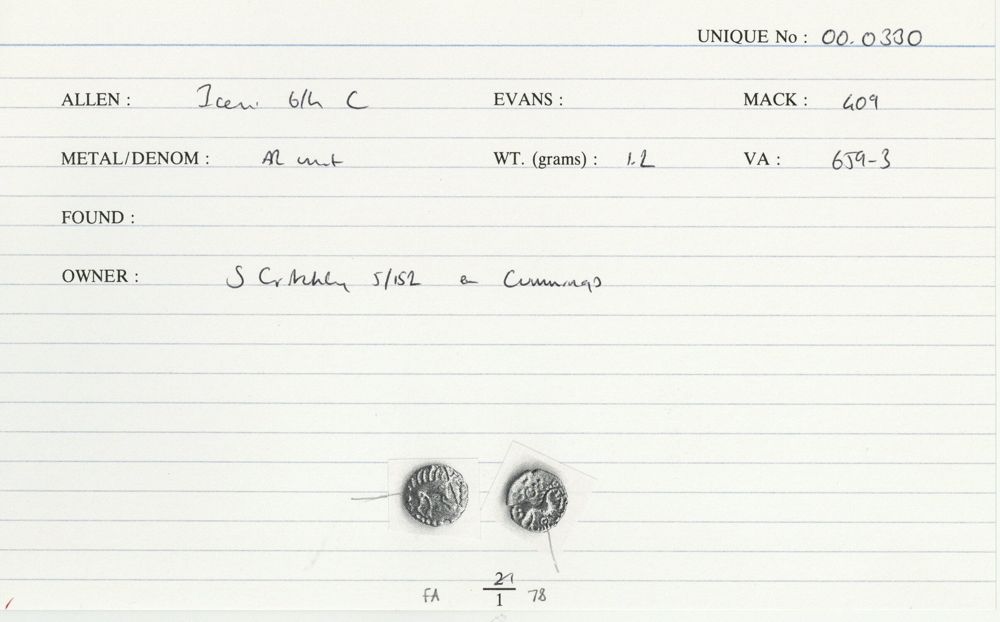 UNIQUE No : 00.0330
ALLEN : Iceni b/h C EVANS : MACK : 409
METAL/DENOM : AR unit WT. (grams) : 1.2 VA : 659-3
FOUND :
OWNER : S Critchley 5/152 Cummings
FA 21/1 78